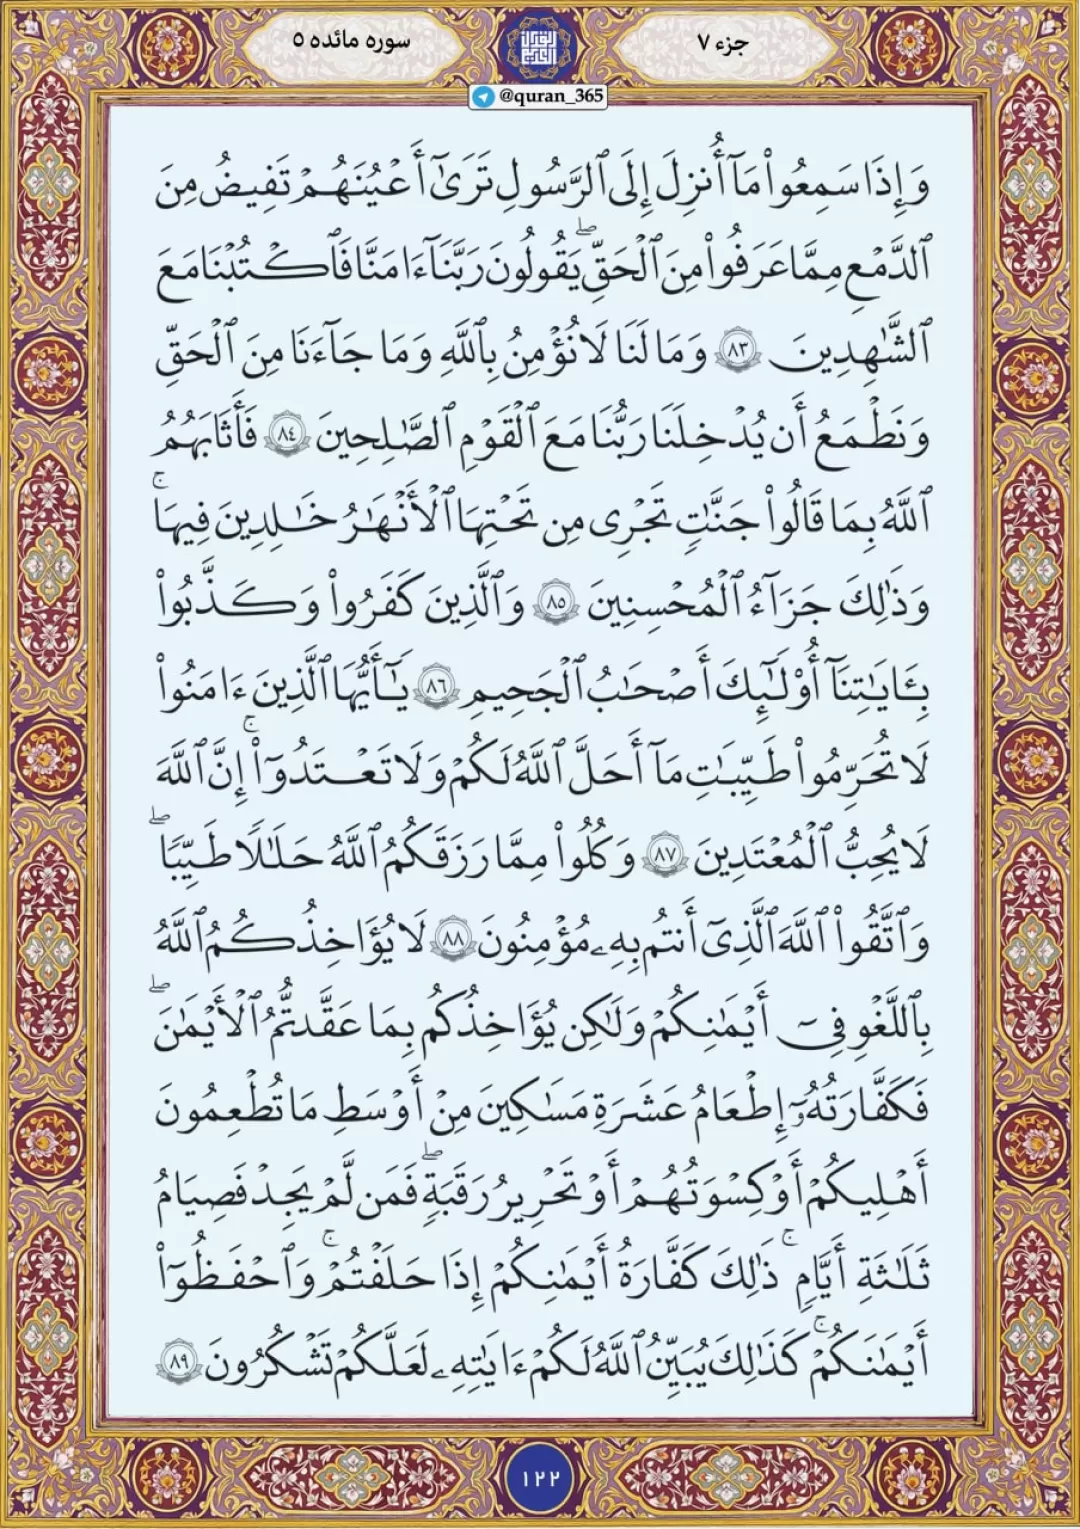 جزء ۷
سوره مائده ۵
@quran_365
وَإِذَا سَمِعُوا۟ مَآ أُنزِلَ إِلَى ٱلرَّسُولِ تَرَىٰٓ أَعْيُنَهُمْ تَفِيضُ مِنَ
ٱلدَّمْعِ مِمَّا عَرَفُوا۟ مِنَ ٱلْحَقِّ ۖ يَقُولُونَ رَبَّنَآ ءَامَنَّا فَٱكْتُبْنَا مَعَ
ٱلشَّٰهِدِينَ ٨٣ وَمَا لَنَا لَا نُؤْمِنُ بِٱللَّهِ وَمَا جَآءَنَا مِنَ ٱلْحَقِّ
وَنَطْمَعُ أَن يُدْخِلَنَا رَبُّنَا مَعَ ٱلْقَوْمِ ٱلصَّٰلِحِينَ ٨٤ فَأَثَٰبَهُمُ
ٱللَّهُ بِمَا قَالُوا۟ جَنَّٰتٍ تَجْرِى مِن تَحْتِهَا ٱلْأَنْهَٰرُ خَٰلِدِينَ فِيهَا ۚ
وَذَٰلِكَ جَزَآءُ ٱلْمُحْسِنِينَ ٨٥ وَٱلَّذِينَ كَفَرُوا۟ وَكَذَّبُوا۟
بِـَٔايَٰتِنَآ أُو۟لَٰٓئِكَ أَصْحَٰبُ ٱلْجَحِيمِ ٨٦ يَٰٓأَيُّهَا ٱلَّذِينَ ءَامَنُوا۟
لَا تُحَرِّمُوا۟ طَيِّبَٰتِ مَآ أَحَلَّ ٱللَّهُ لَكُمْ وَلَا تَعْتَدُوٓا۟ ۚ إِنَّ ٱللَّهَ
لَا يُحِبُّ ٱلْمُعْتَدِينَ ٨٧ وَكُلُوا۟ مِمَّا رَزَقَكُمُ ٱللَّهُ حَلَٰلًا طَيِّبًا ۖ
وَٱتَّقُوا۟ ٱللَّهَ ٱلَّذِىٓ أَنتُم بِهِۦ مُؤْمِنُونَ ٨٨ لَا يُؤَاخِذُكُمُ ٱللَّهُ
بِٱللَّغْوِ فِىٓ أَيْمَٰنِكُمْ وَلَٰكِن يُؤَاخِذُكُم بِمَا عَقَّدتُّمُ ٱلْأَيْمَٰنَ ۖ
فَكَفَّٰرَتُهُۥٓ إِطْعَامُ عَشَرَةِ مَسَٰكِينَ مِنْ أَوْسَطِ مَا تُطْعِمُونَ
أَهْلِيكُمْ أَوْ كِسْوَتُهُمْ أَوْ تَحْرِيرُ رَقَبَةٍ ۖ فَمَن لَّمْ يَجِدْ فَصِيَامُ
ثَلَٰثَةِ أَيَّامٍ ۚ ذَٰلِكَ كَفَّٰرَةُ أَيْمَٰنِكُمْ إِذَا حَلَفْتُمْ ۚ وَٱحْفَظُوٓا۟
أَيْمَٰنَكُمْ ۚ كَذَٰلِكَ يُبَيِّنُ ٱللَّهُ لَكُمْ ءَايَٰتِهِۦ لَعَلَّكُمْ تَشْكُرُونَ ٨٩
١٢٢